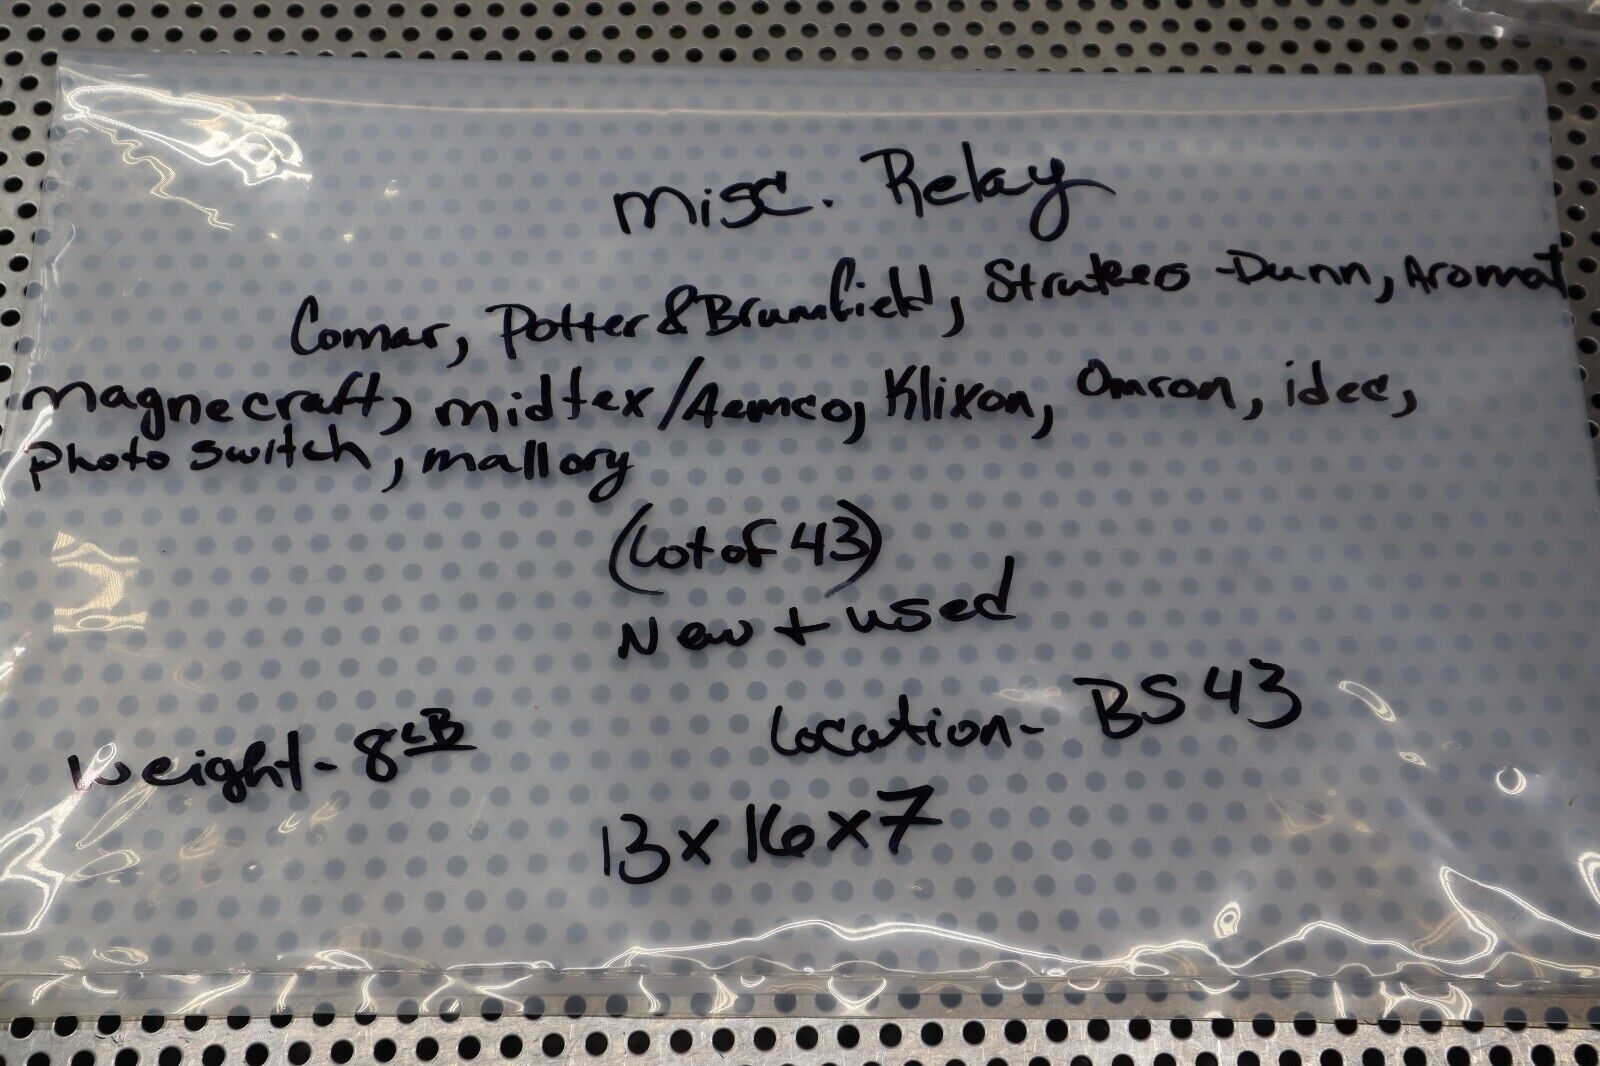 misc. Relay
Comar, Potter & Brumfield, Struthers-Dunn, Aromat
magnecraft, midtex/Aemco, Klixon, Omron, idec,
photo switch, mallory
(Lot of 43)
New + used
Weight - 8 LB
Location - BS 43
13 x 16 x 7